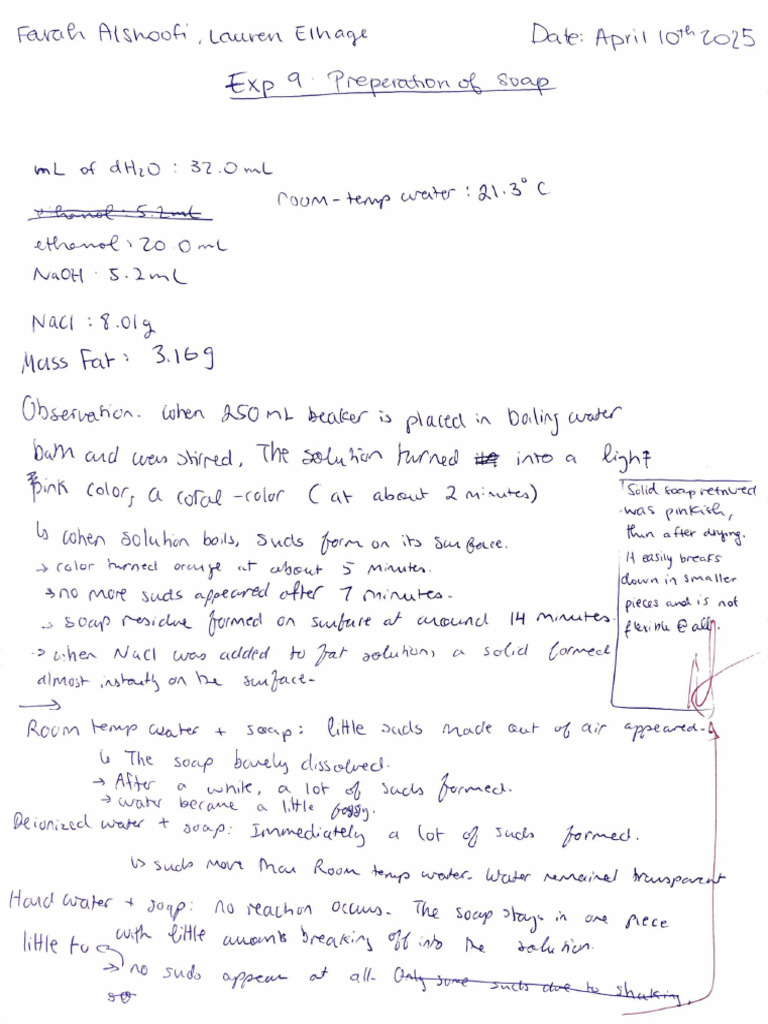 Farah Alshoofi, Lauren Elhage
Date: April 10th 2025
Exp 9. Preperation of soap
mL of dH2O : 32.0 mL
room-temp water : 21.3° C
ethanol : 5.2mL
ethanol : 20.0 mL
NaOH : 5.2 mL
NaCl : 8.01g
Mass Fat : 3.16g
Observation. when 250 mL beaker is placed in boiling water
bath and was stirred, The solution turned into a light
pink color, a coral-color (at about 2 minutes)
↳ when solution boils, suds form on its surface.
→ color turned orange at about 5 minutes.
→ no more suds appeared after 7 minutes.
→ soap residue formed on surface at around 14 minutes.
→ when NaCl was added to fat solution, a solid formed
almost instantly on the surface.
Solid soap retrieved
was pinkish,
thin after drying.
It easily breaks
down in smaller
pieces and is not
flexible @ all.
→
Room temp water + soap: little suds made out of air appeared.
↳ The soap barely dissolved.
→ After a while, a lot of suds formed.
→ water became a little foggy.
Deionized water + soap: Immediately a lot of suds formed.
↳ suds more than Room temp water. Water remained transparent
Hard water + soap: no reaction occurs. The soap stays in one piece
with little amounts breaking off into the solution.
little to
→ no suds appear at all. Only some suds due to shaking,
so